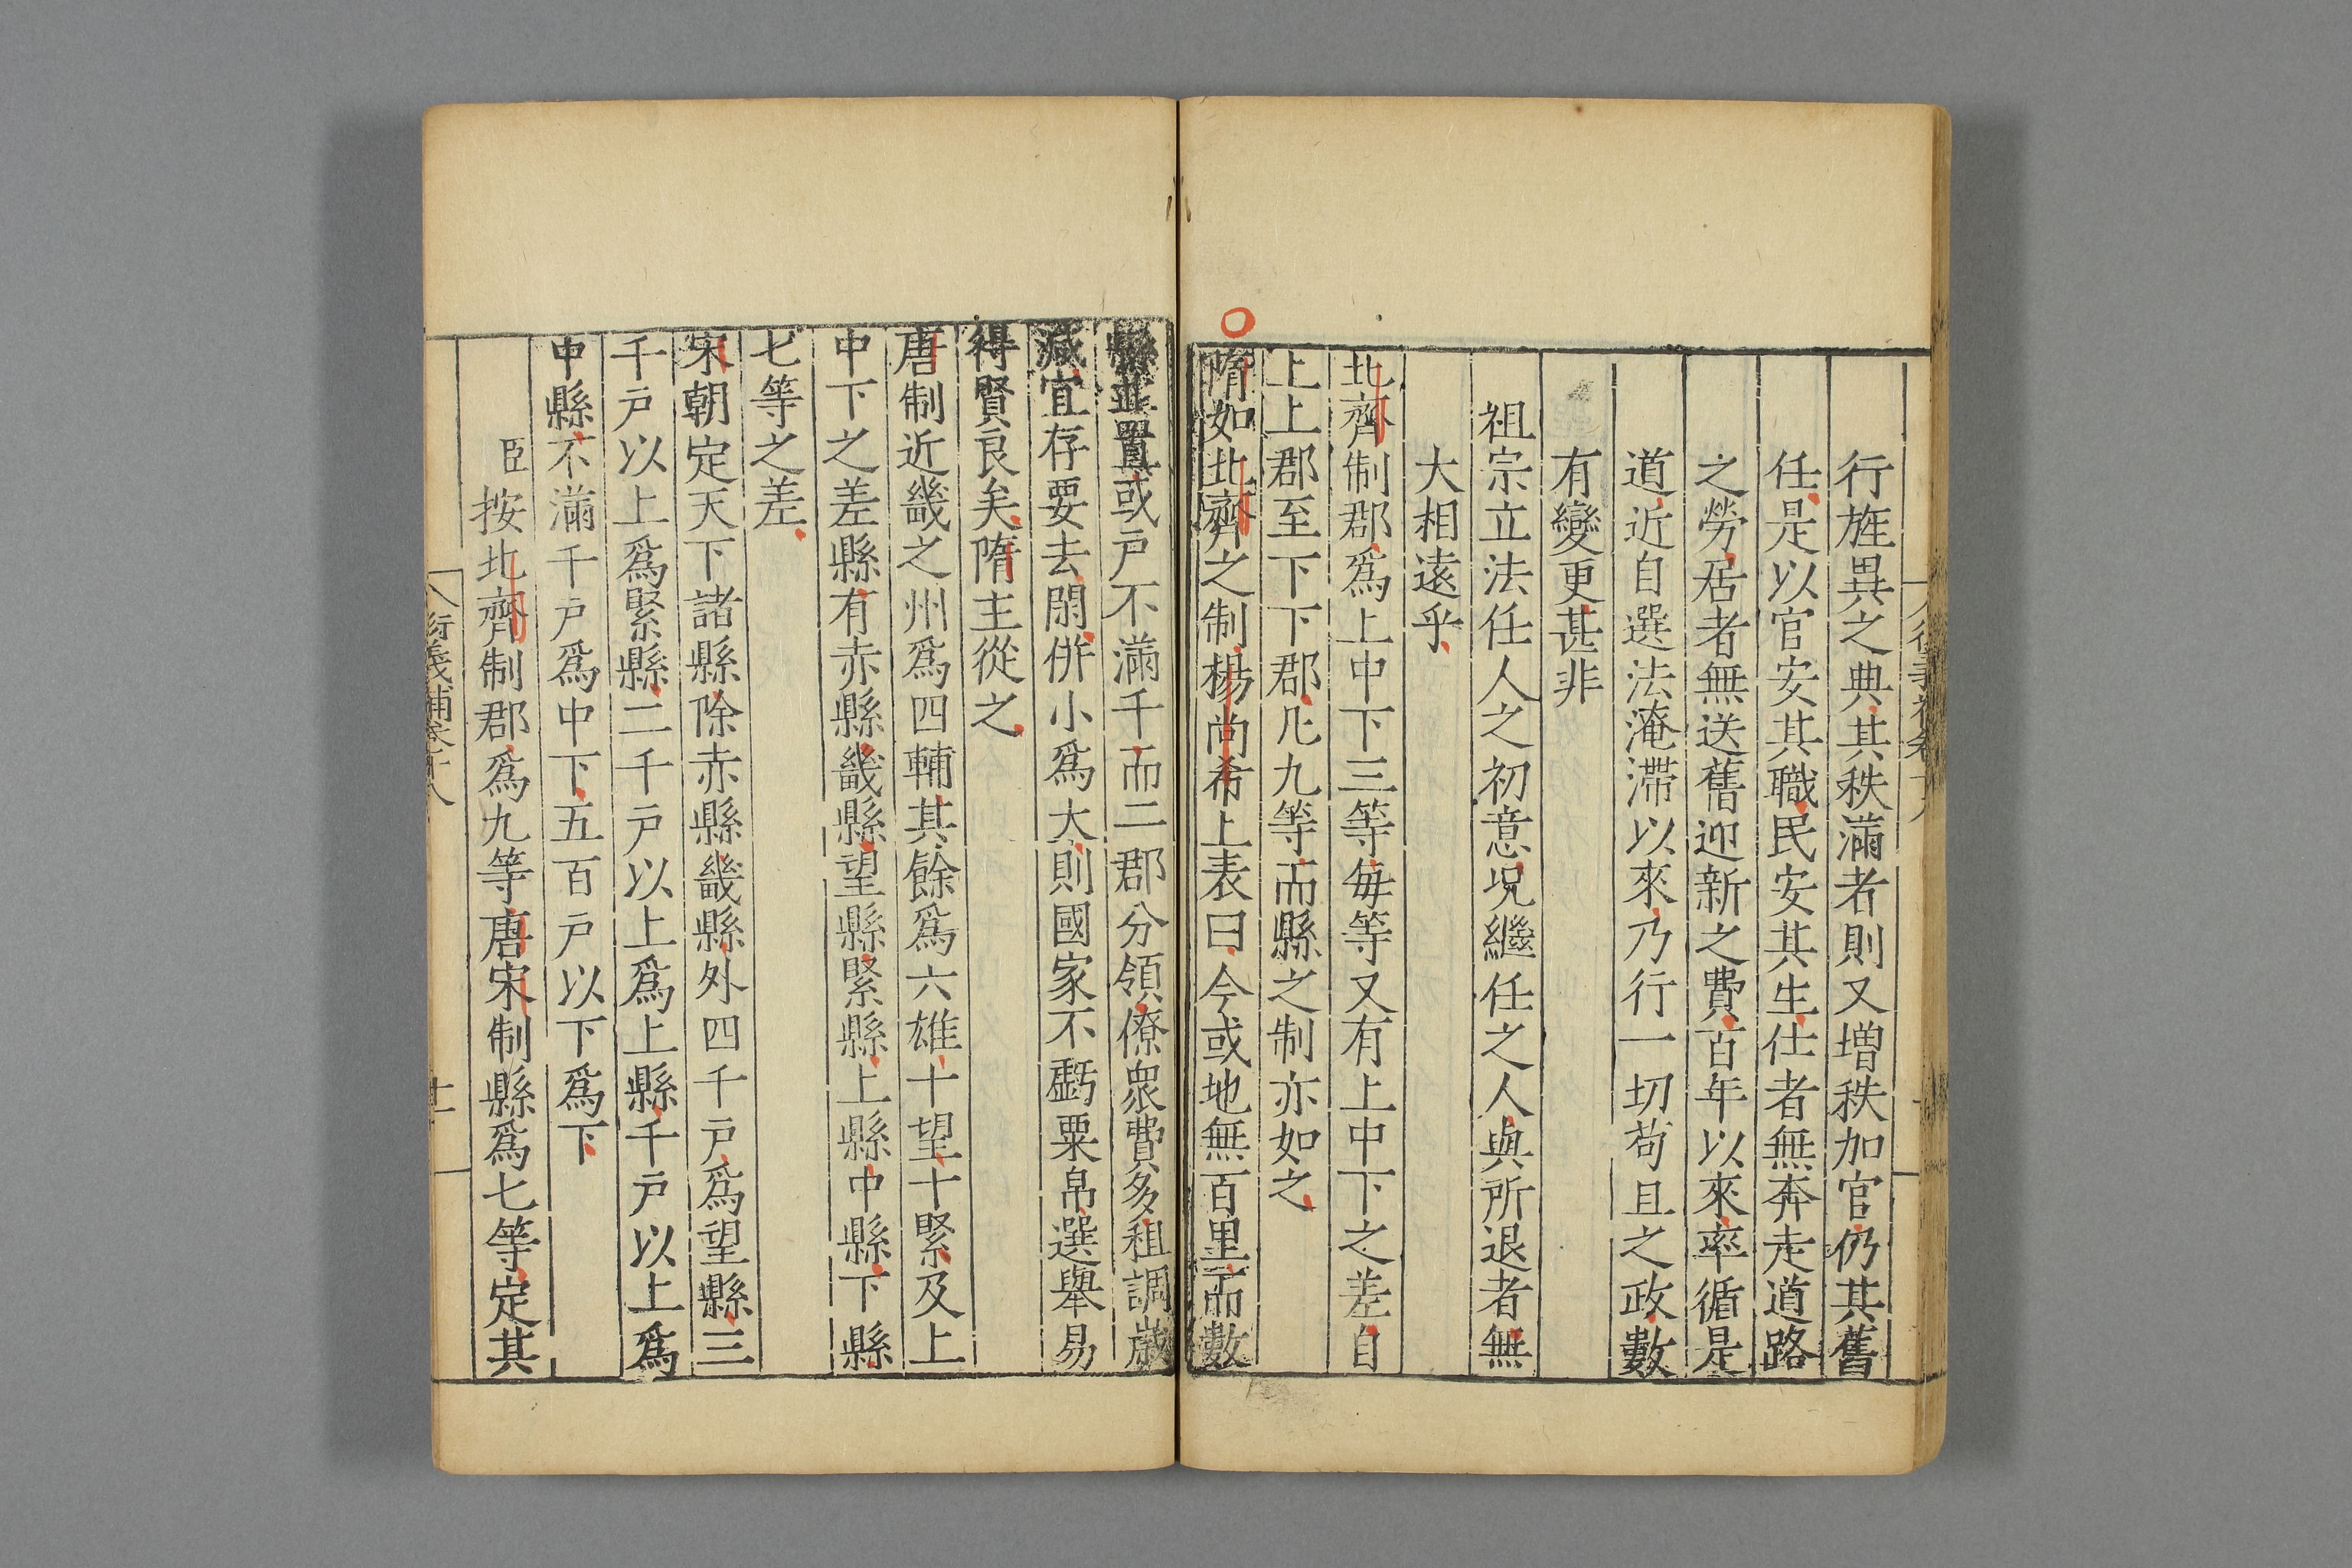 行旌異之典其秩滿者則又增秩加官仍其舊
任是以官安其職民安其生仕者無奔走道路
之勞居者無送舊迎新之費百年以來率循是
道近自選法淹滯以來乃行一切苟且之政數
有變更甚非
祖宗立法任人之初意况繼任之人與所退者無
大相遠乎
北齊制郡爲上中下三等每等又有上中下之差自
上上郡至下下郡凡九等而縣之制亦如之
隋如北齊之制楊尚希上表曰今或地無百里而數
縣並置或戶不滿千而二郡分領僚衆費多租調歲
減宜存要去閑併小爲大則國家不虧粟帛選舉易
得賢良矣隋主從之
唐制近畿之州爲四輔其餘爲六雄十望十緊及上
中下之差縣有赤縣畿縣望縣緊縣上縣中縣下縣
七等之差
宋朝定天下諸縣除赤縣畿縣外四千戶爲望縣三
千戶以上爲緊縣二千戶以上爲上縣千戶以上爲
中縣不滿千戶爲中下五百戶以下爲下
臣按北齊制郡爲九等唐宋制縣爲七等定其
衍義補卷十八